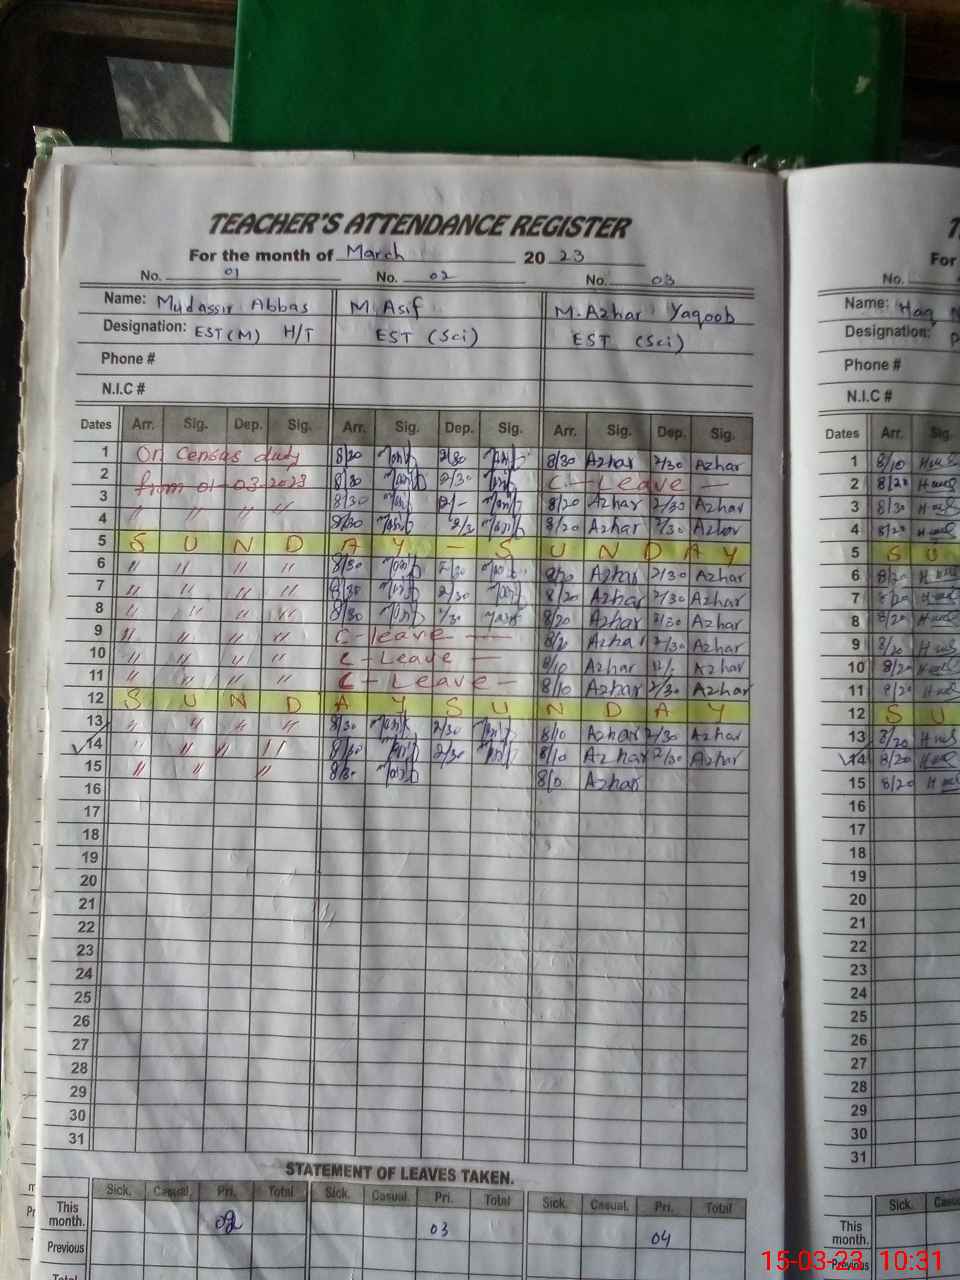 TEACHER'S ATTENDANCE REGISTER
For the month of March 2023
No. 01 No. 02 No. 03
Name: Mudassir Abbas M. Asif M. Azhar Yaqoob
Designation: EST (M) H/T EST (Sci) EST (Sci)
Phone #
N.I.C #
Dates Arr. Sig. Dep. Sig. Arr. Sig. Dep. Sig. Arr. Sig. Dep. Sig.
1 On Census duty 8/20 2/30 8/30 Azhar 2/30 Azhar
2 from 01-03-2023 8/30 2/30 C-Leave -
3 " " " " 8/30 8/20 Azhar 2/30 Azhar
4 8/30 8/20 Azhar 2/30 Azhar
5 S U N D A Y - S U N D A Y
6 " " " " 8/30 8/20 Azhar 2/30 Azhar
7 " " " " 8/30 2/30 8/20 Azhar 2/30 Azhar
8 " " " " 8/30 2/30 8/20 Azhar 2/30 Azhar
9 " " " " C-leave - Azhar 2/30 Azhar
10 " " " " C-Leave - 8/10 Azhar Azhar
11 " " " " C-Leave - 8/10 Azhar 2/30 Azhar
12 S U N D A Y S U N D A Y
13 " " " " 8/30 2/30 8/10 Azhar 2/30 Azhar
14 " " " " 8/30 2/30 8/10 Azhar 2/30 Azhar
15 " " " 8/30 8/10 Azhar
16
17
18
19
20
21
22
23
24
25
26
27
28
29
30
31
STATEMENT OF LEAVES TAKEN.
Sick. Casual. Pri. Total Sick. Casual. Pri. Total Sick. Casual. Pri. Total
This month. 03 04
Previous
Total
For
No.
Name: Haq
Designation:
Phone #
N.I.C #
Dates Arr. Sig.
1 8/10
2 8/20
3 8/20
4 8/20
5 S U
6 8/20
7 8/20
8 8/20
9 8/20
10 8/20
11 8/20
12 S U
13 8/20
14 8/20
15 8/20
16
17
18
19
20
21
22
23
24
25
26
27
28
29
30
31
Sick.
This month.
Previous
15-03-23 10:31